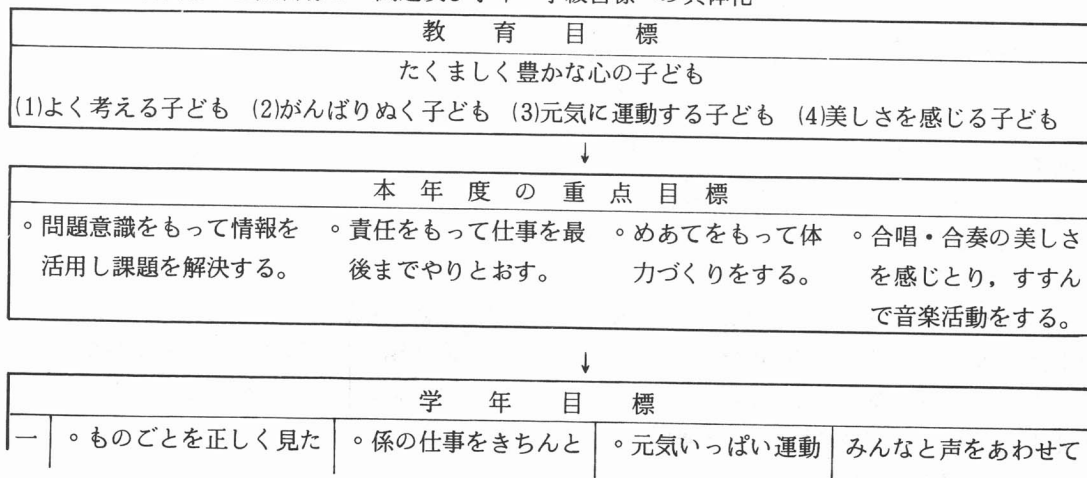 教育目標
たくましく豊かな心の子ども
(1)よく考える子ども (2)がんばりぬく子ども (3)元気に運動する子ども (4)美しさを感じる子ども
↓
本年度の重点目標
◦問題意識をもって情報を
活用し課題を解決する。
◦責任をもって仕事を最
後までやりとおす。
◦めあてをもって体
力づくりをする。
◦合唱・合奏の美しさ
を感じとり，すすん
で音楽活動をする。
↓
学年目標
一
◦ものごとを正しく見た
◦係の仕事をきちんと
◦元気いっぱい運動
みんなと声をあわせて